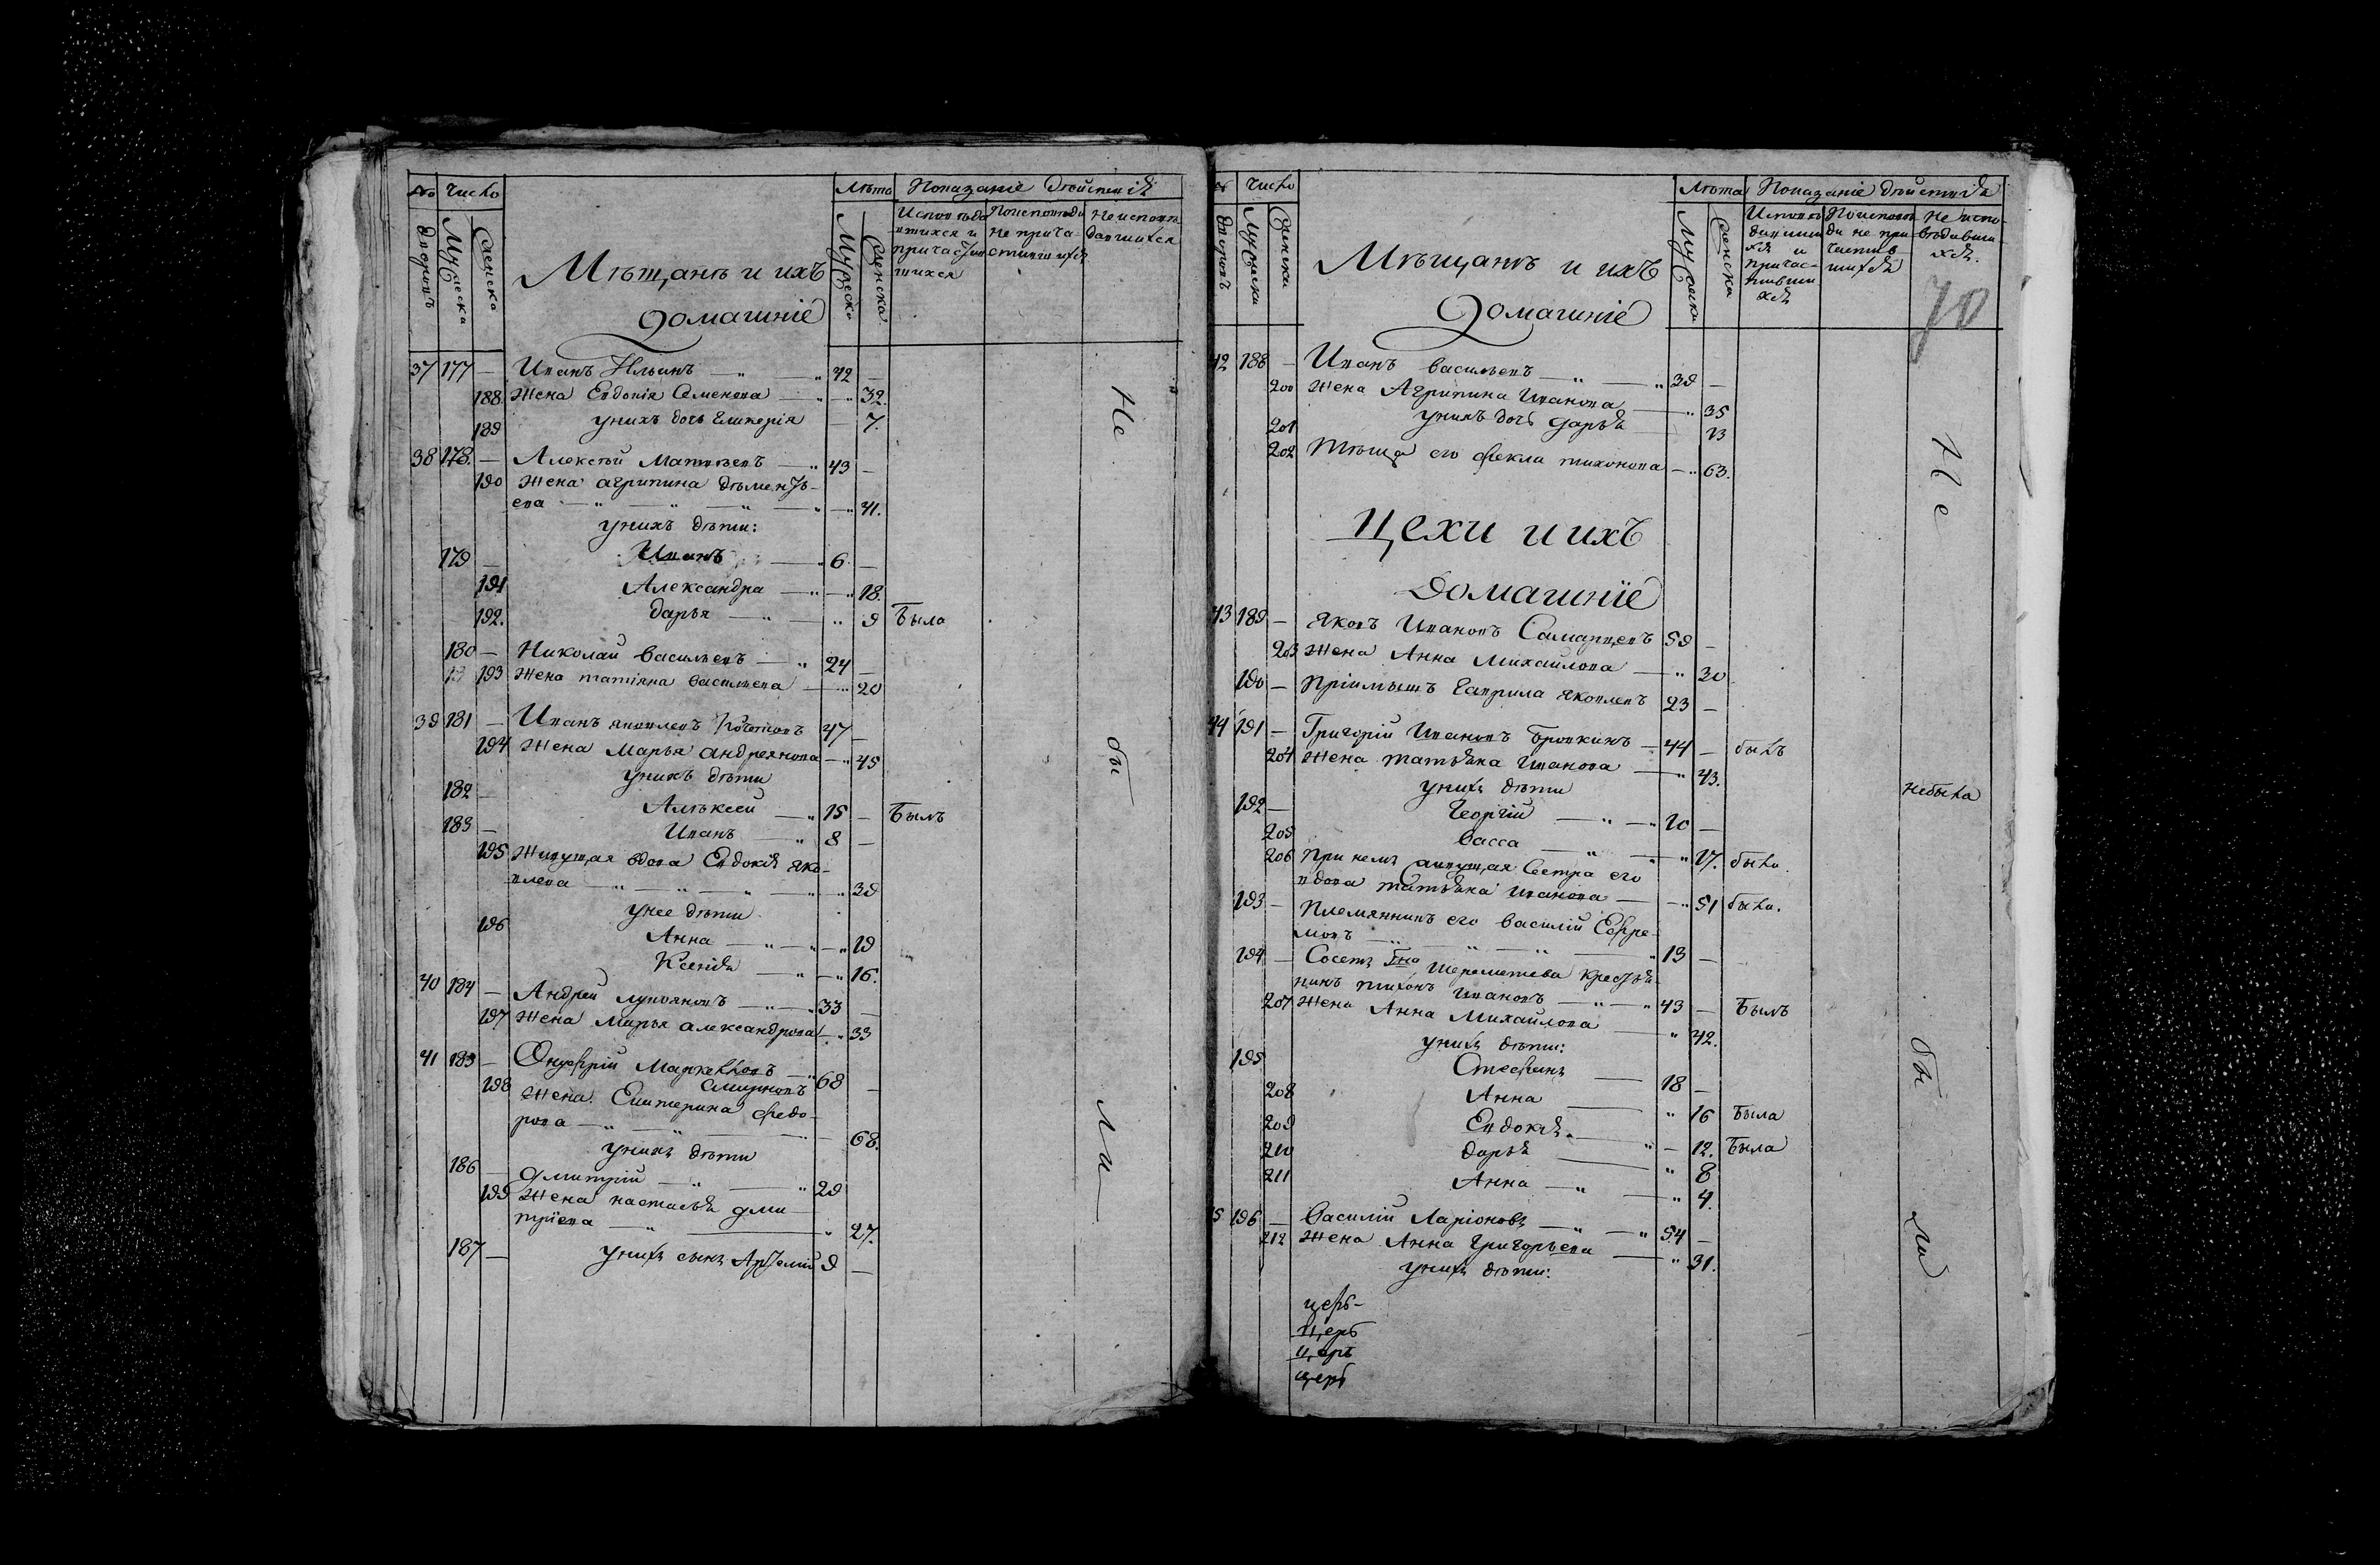 № Число Лѣта Показаніе дѣйствія
дворовъ Мужеска Женска Мужеска Женска
Исповѣдавшихся и причастившихся
По исповѣди не причастившихся
Не исповѣдавшихся
Мѣщанъ и ихъ
домашніе
37 177 — Иванъ Ильинъ — 42 —
188. Жена Евдокія Семенова — 32.
189 у нихъ дочь Гликерія — 7.
38 178. — Алексѣй Матвѣевъ — 43 —
190 Жена Агрипина Дѣменть-
ева — 41.
у нихъ дѣти:
179 — Иванъ — 6 —
191 Александра — 18.
192. Дарья — 9 Была
180 — Николай Васильевъ — 24 —
193 Жена Татіяна Васильева — 20
39 181 — Иванъ Яковлевъ 47 —
194 Жена Марья Андреянова — 45
у нихъ дѣти
182 — Алѣксей — 15 — Былъ
183 — Иванъ — 8 —
195 Живущая вдова Евдокія Яко-
влева — 39
у нее дѣти
196 Анна — 19
Ксенія — 16.
40 184 — Андрей Лукояновъ — 33 —
197 Жена Марья Александрова — 33
41 185 — Онуфрій Маркелловъ — 68 —
Смирновъ
198 Жена Екатерина Федо-
рова — 68.
у нихъ дѣти
186 — Дмитрій — 29
199 Жена Настасья Дми-
тріева — 27.
187 — у нихъ сынъ Артемій 9 —
Не бы ли
№ Число Лѣта Показаніе дѣйствія
дворовъ Мужеска Женска Мужеска Женска
Исповѣдавшихся и причастившихся
По исповѣди не причастившихся
Не исповѣдавшихся.
70
Мѣщанъ и ихъ
домашніе
42 188 — Иванъ Васильевъ — 39 —
200 Жена Агрипина Иванова — 35
201 у нихъ дочь Дарья 13
202 Тѣща его Фекла Тихонова — 63.
Цехи и ихъ
домашніе
43 189 — Яковъ Ивановъ 59 —
203 Жена Анна Михайлова — 30
190 — Пріимышъ Гаврила Яковлевъ 23 —
44 191 — Григорій Ивановъ Бровкинъ — 44 — былъ
204 Жена Татьяна Иванова — 43.
у нихъ дѣти небыла
192 — Георгій — 10 —
205 Васса — 17. была.
206 При немъ живущая Сестра его
вдова Татьяна Иванова — 51 была.
193 — Племянникъ его Василій Ефре-
мовъ — 13 —
194 — Сосетъ Гна Шереметева Крестья-
нинъ Тихонъ Ивановъ — 43 — Былъ
207 Жена Анна Михайлова — 42.
у нихъ дѣти:
195 Стефанъ — 18 —
208 Анна — 16 Была
209 Евдокія — 12. Была
210 Дарья — 8
211 Анна — 4.
45 196 — Василій Ларіоновъ — 54 —
212 Жена Анна Григорьева — 31.
у нихъ дѣти:
церь-
церь
церь
церь
Не бы ли